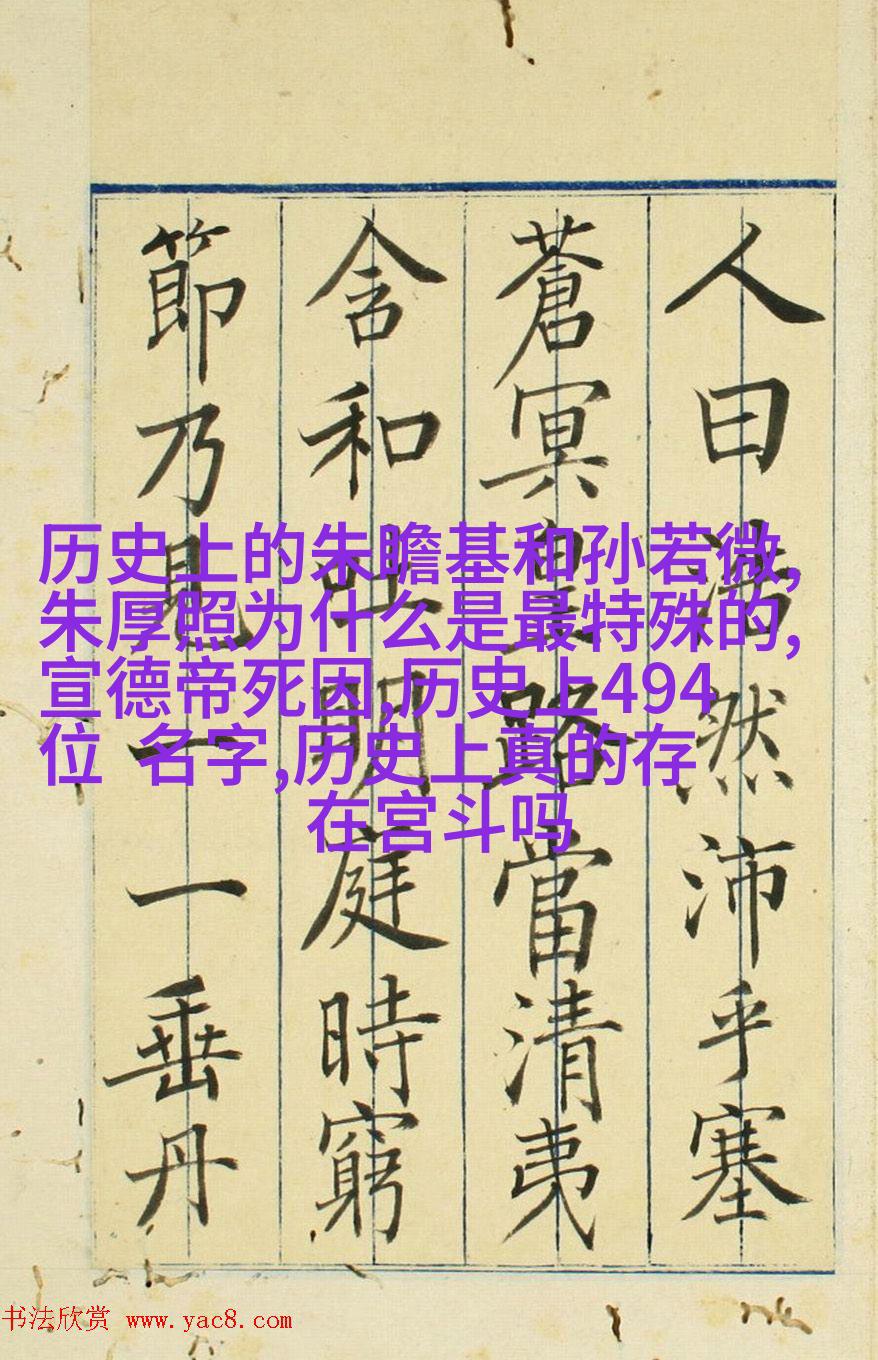 人曰浩然沛乎塞
蒼冥皇路當清夷
含和吐明庭時窮
節乃見一一垂丹
历史上的朱瞻基和孙若微,
朱厚照为什么是最特殊的,
宣德帝死因,历史上494
位 名字,历史上真的存
在宫斗吗
书法欣赏 www.yac8.com